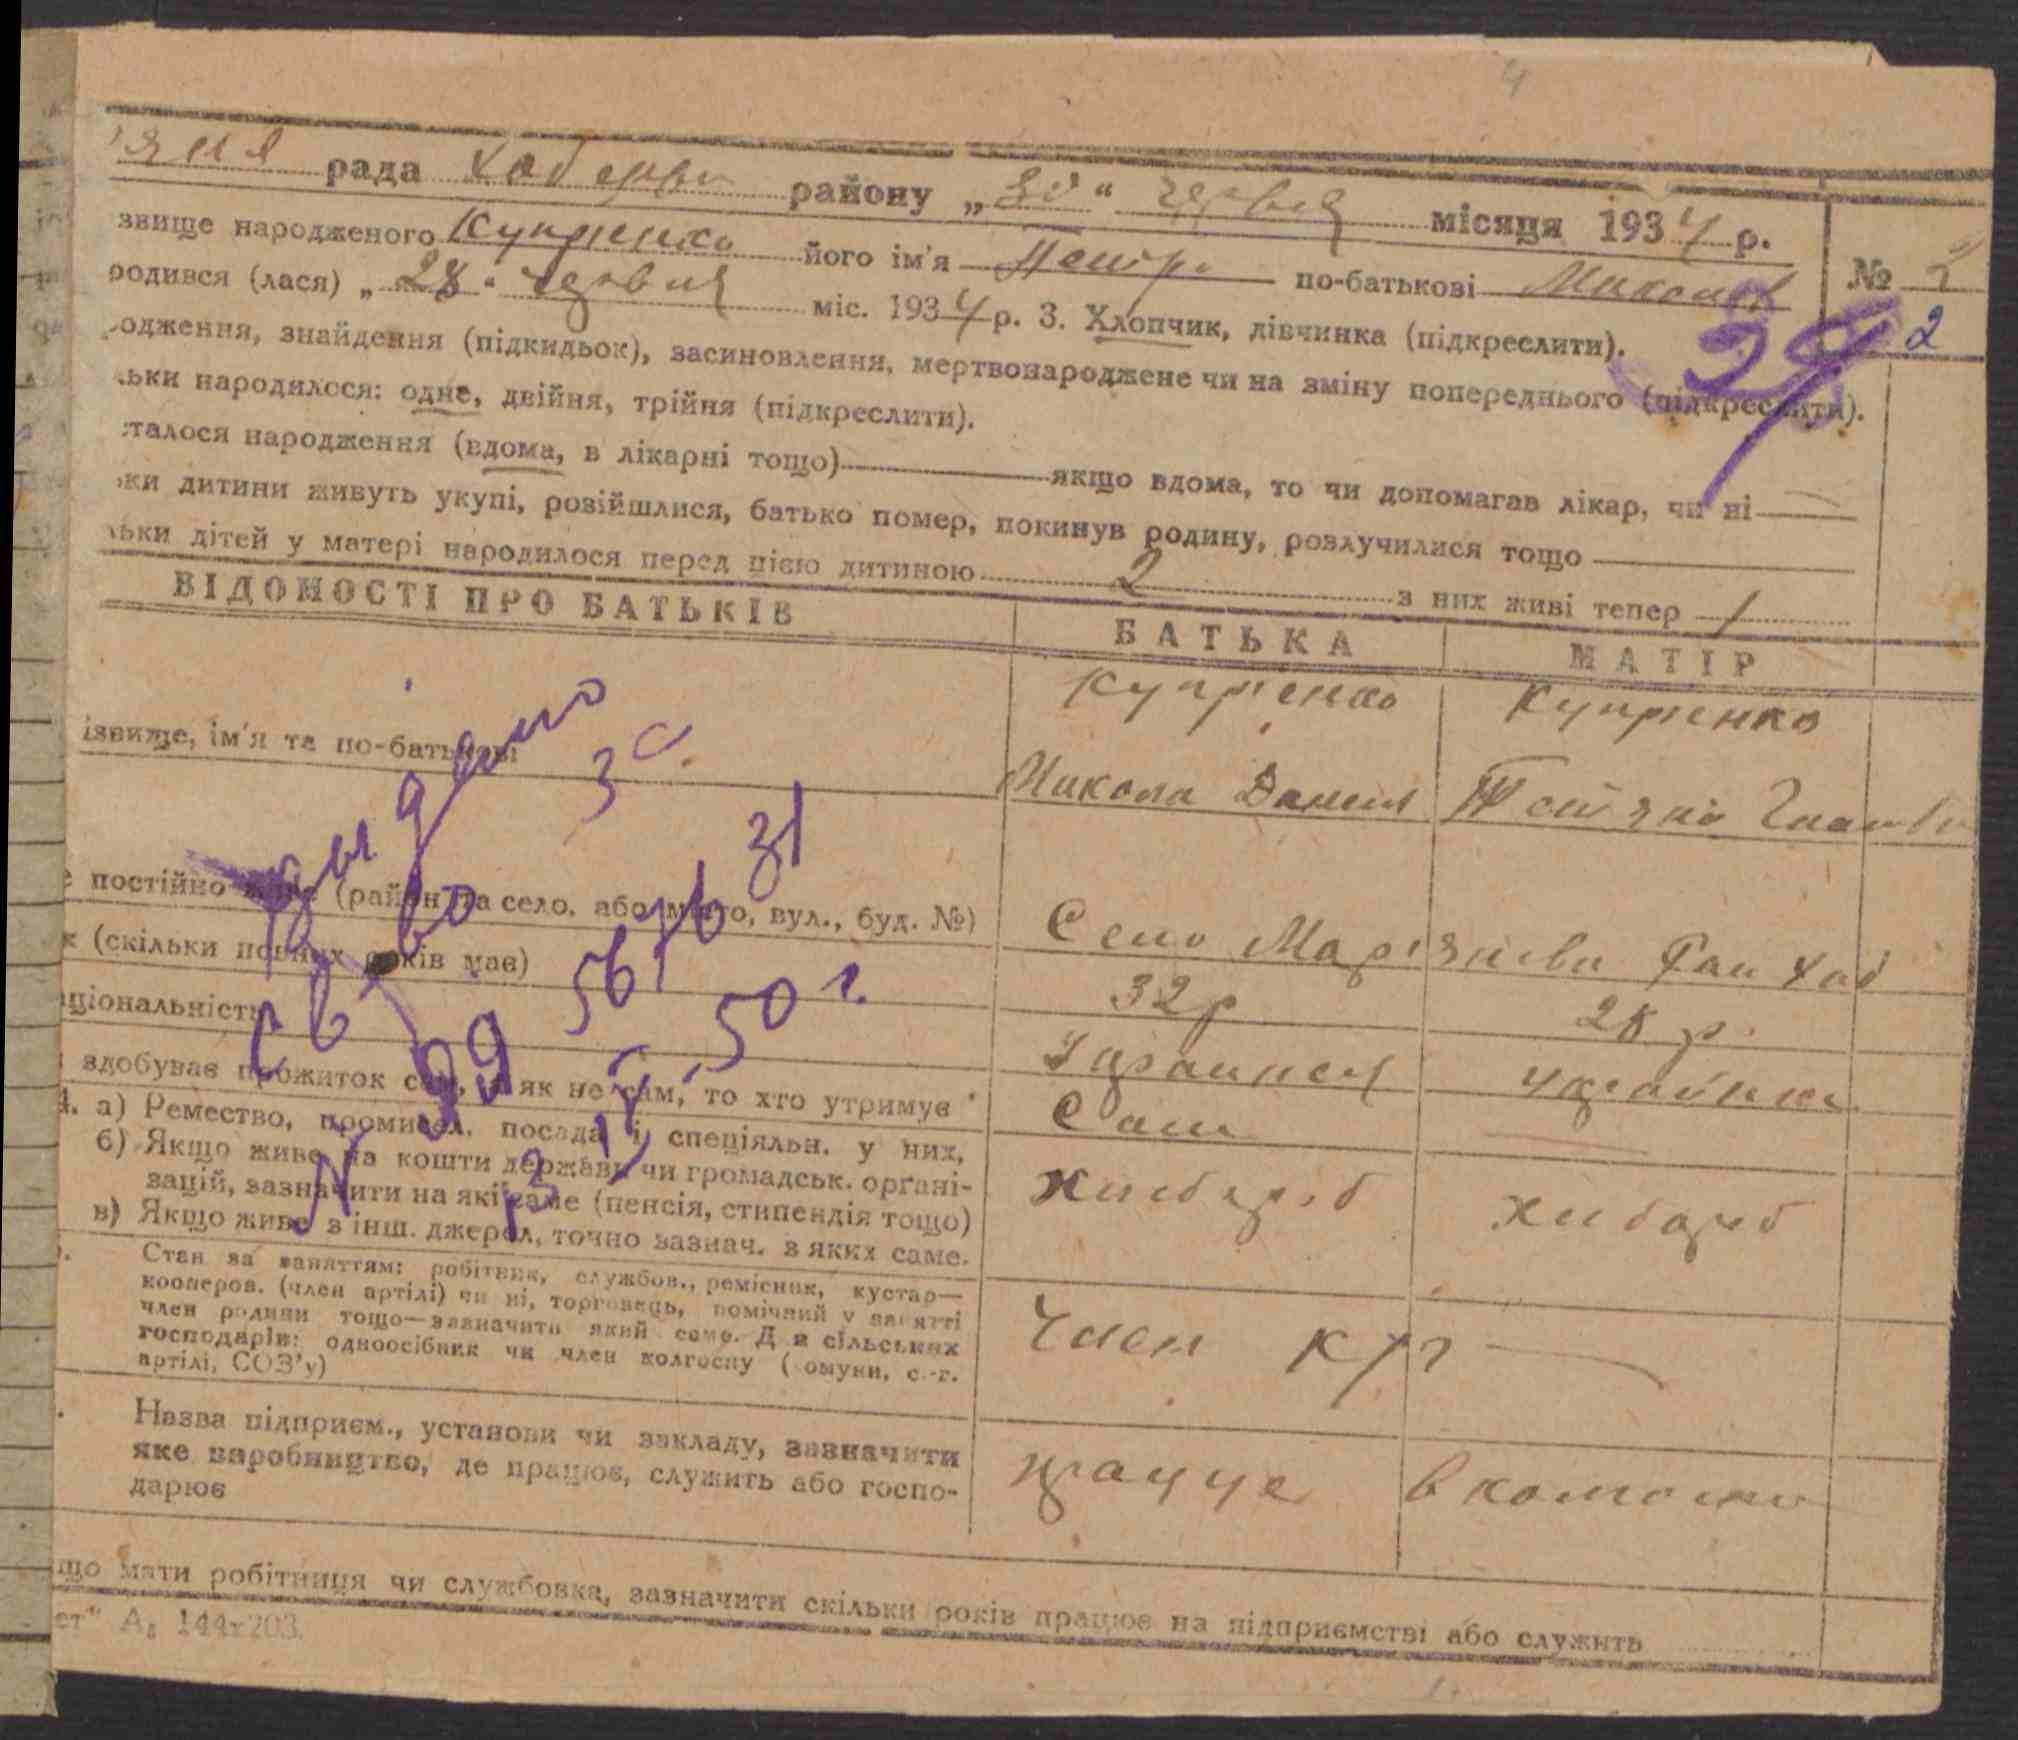 рада Хабенськ району „30“ червня місяця 1934 р.
звище народженого Купрієнко його ім'я Петро по-батькові Микола
№ 2
родився (лася) „28“ червня міс. 1934 р. 3. Хлопчик, дівчинка (підкреслити).
29 2
одження, знайдення (підкидьок), засиновлення, мертвонароджене чи на зміну попереднього (підкреслити).
льки народилося: одне, двійня, трійня (підкреслити).
талося народження (вдома, в лікарні тощо) якщо вдома, то чи допомагав лікар, чи ні
ки дитини живуть укупі, розійшлися, батько помер, покинув родину, розлучилися тощо
льки дітей у матері народилося перед цією дитиною 2 з них живі тепер 1
ВІДОМОСТІ ПРО БАТЬКІВ БАТЬКА МАТІР
ізвище, ім'я та по-батькові
Купрієнко Купрієнко
Микола Данил Тетяна
постійно живе (район та село, або місто, вул., буд. №) Село
к (скільки повних років має) 32 р 28 р.
аціональність Українец Українка
здобуває прожиток сам, а як не сам, то хто утримує Сам
4. а) Ремество, промисел, посада і спеціяльн. у них,
б) Якщо живе на кошти держави чи громадськ. органі-
зацій, зазначити на які саме (пенсія, стипендія тощо)
в) Якщо живе з інш. джерел, точно зазнач. з яких саме.
хлібороб хлібороб
Стан за заняттям: робітник, службов., ремісник, кустар—
кооперов. (член артілі) чи ні, торговець, помічний у занятті
член родини тощо—зазначити який саме. Для сільських
господарів: одноосібник чи член колгоспу (комуни, с.-г.
артілі, СОЗ'у)
Член к/г
Назва підприєм., установи чи закладу, зазначити
яке виробництво, де працює, служить або госпо-
дарює
працує в колгоспі
що мати робітниця чи службовка, зазначити скільки років працює на підприємстві або служить
ет“ А₅ 144х203.
выдано
св во
31
№ 99
50 г.